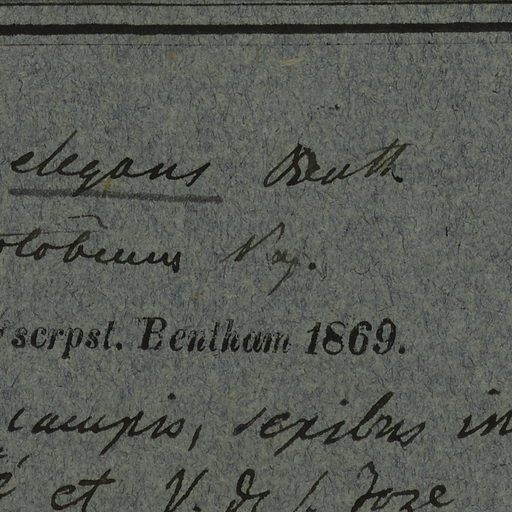 elegans Benth
scrpst. Bentham 1869.
campis, sepibus in
et V. de S. Joze